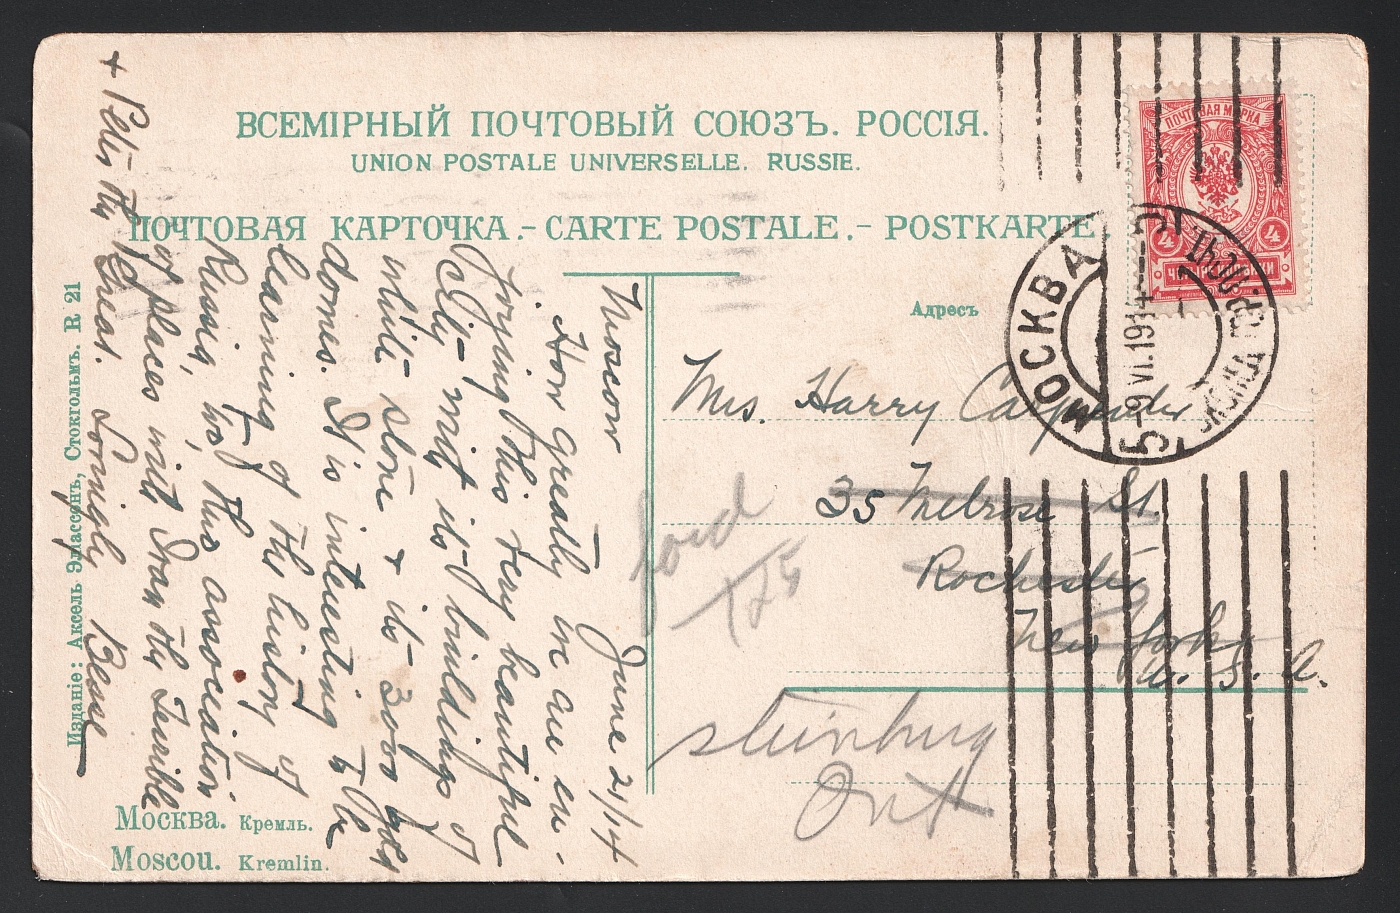 ВСЕМІРНЫЙ ПОЧТОВЫЙ СОЮЗЪ. РОССІЯ.
UNION POSTALE UNIVERSELLE. RUSSIE.
ПОЧТОВАЯ КАРТОЧКА.-CARTE POSTALE.-POSTKARTE.
Moscow June 21/14
How greatly we are en-
joying this very beautiful
City - with its buildings of
white stone + its 3000 gold
domes. It is interesting to be
learning of the history of
Russia, too, this association
of places with Ivan the Terrible
+ Peter the Great. Lovingly Besse
Адресъ
Mrs. Harry Carpenter
35 Melrose St.
Rochester
New York
U. S. A.
Ont
ПОЧТОВАЯ МАРКА
4 4
МОСКВА
5-9 VI.1914
МОСКВА
Изданіе: Аксель Эліассонъ, Стокгольмъ. R 21
Москва. Кремль.
Moscou. Kremlin.